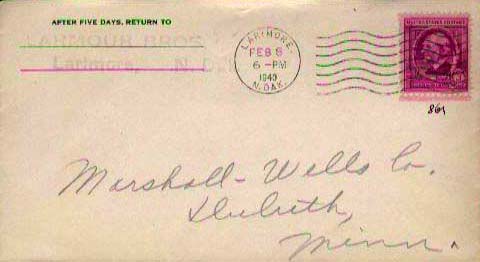 AFTER FIVE DAYS, RETURN TO
LARMOUR BROS
Larimore, N. D.
LARIMORE,
FEB 8
6 - PM
1940
N. DAK.
861
Marshall-Wells Co.
Duluth,
Minn.